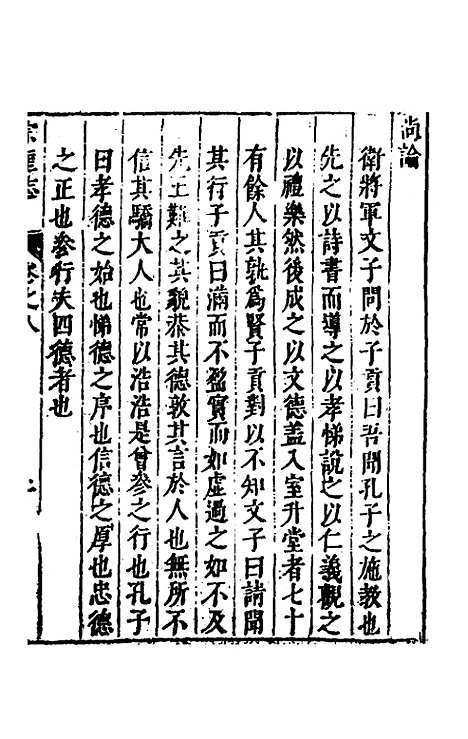 尚論
衛將軍文子問於子貢曰吾聞孔子之施教也
先之以詩書而導之以孝悌說之以仁義觀之
以禮樂然後成之以文德蓋入室升堂者七十
有餘人其孰為賢子貢對以不知文子曰請聞
其行子貢曰滿而不盈實而如虛過之如不及
先王難之其貌恭其德敦其言於人也無所不
信其驕大人也常以浩浩是曾參之行也孔子
曰孝德之始也悌德之序也信德之厚也忠德
之正也參行夫四德者也
宗聖志
卷之八